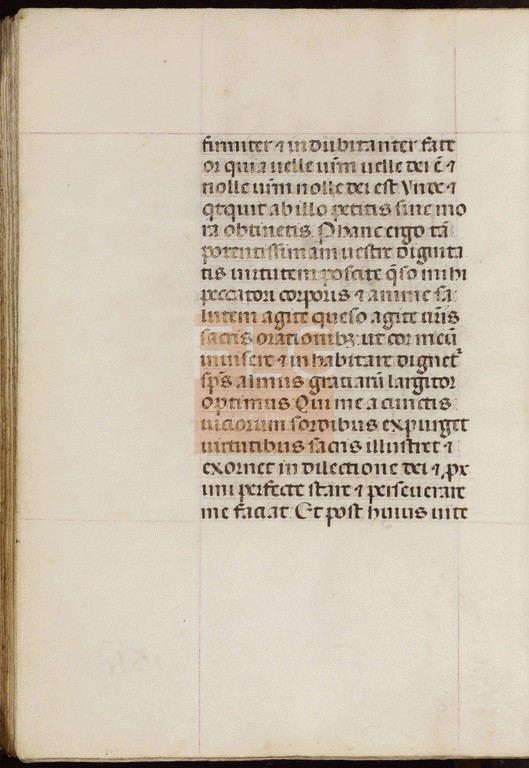 firmiter ⁊ indubitanter fate
or quia uelle ur̄m uelle dei ē ⁊
nolle ur̄m nolle dei est Vnde ⁊
qͥcquit ab illo petitis sine mo
ra obtinetis. P hanc ergo tā
potentissimam uestre dignita
tis uirtutem poscite q̄so mihi
peccatori corporis ⁊ anime sa
lutem agite queso agite ur̄is
sacris orationibꝫ: ut cor meū
inuisere ⁊ inhabitare dignetᷣ
sp̄s almus gratiarū largitor
optimus Qui me a cunctis
uiciorum sordibus expurget
uirtutibus sacris illustret ⁊
exornet in dilectione dei ⁊ ꝓx
imi perfecte stare ⁊ perseuerare
me faciat: Et post huius uite
FLG